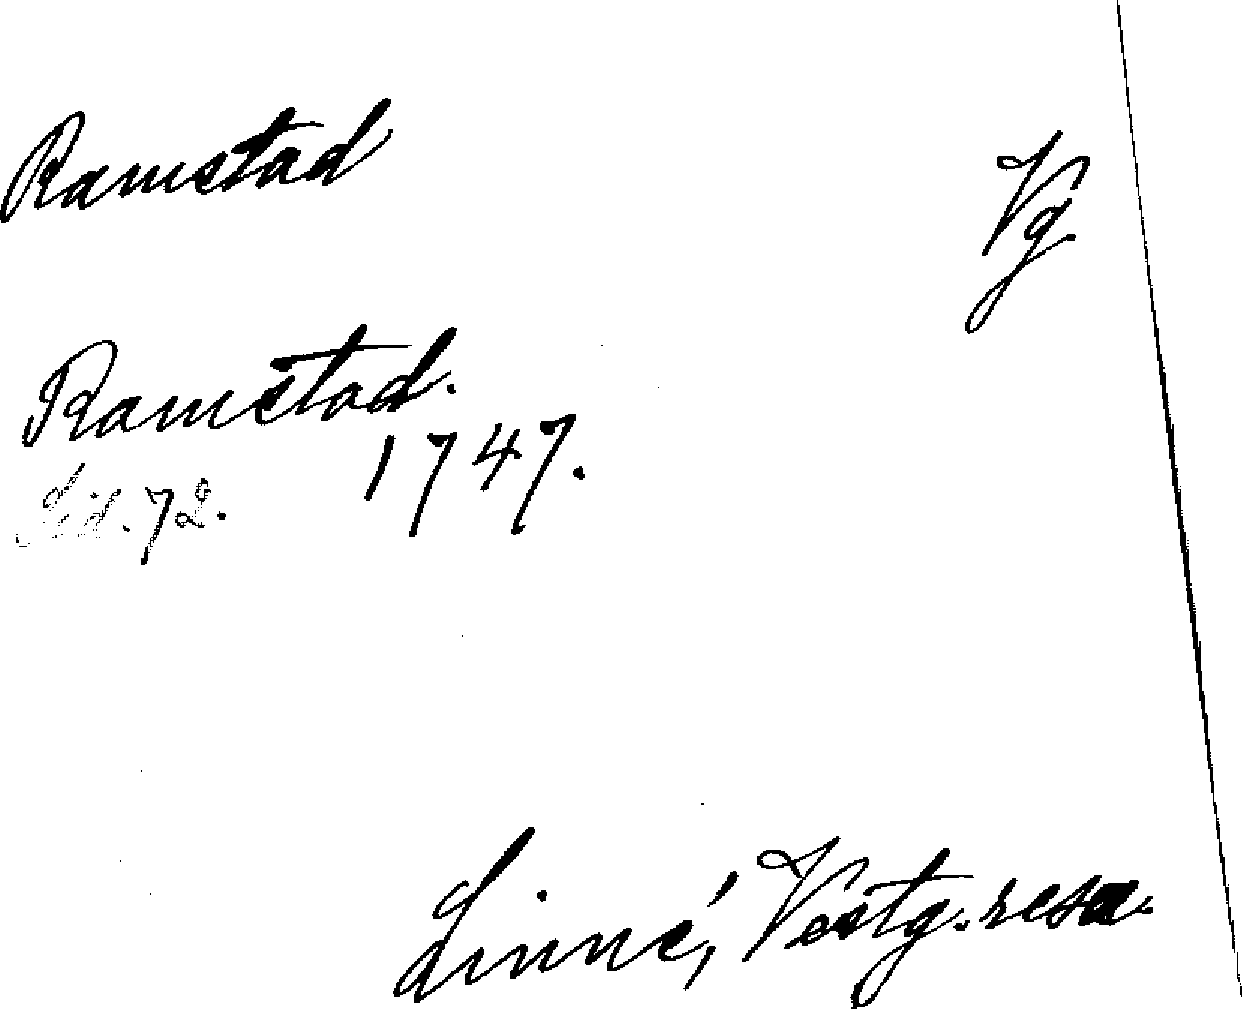 Ramstad Vg.
Ramstad.
1747.
Sid. 72.
Linné, Vestg. resa.